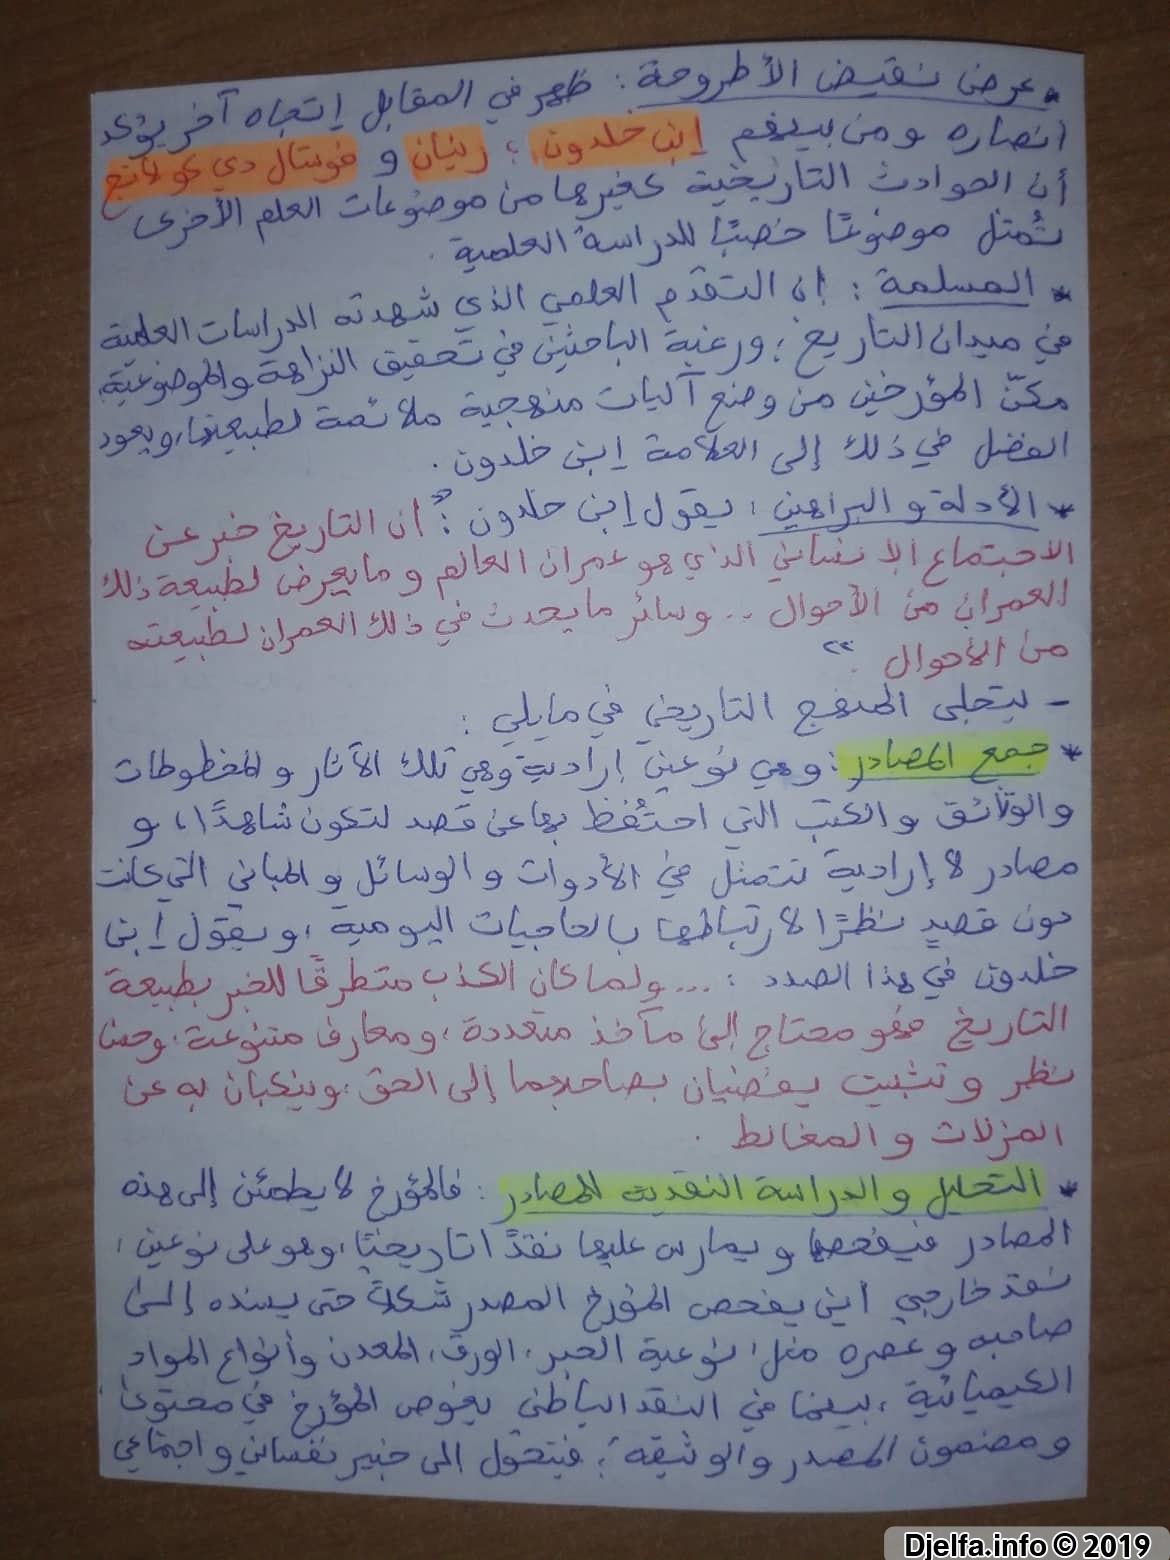 * عرض نقيض الأطروحة : ظهر في المقابل إتجاه آخر يؤكد
أنصاره ومن بينهم إبن خلدون ؛ رنيان و فوستال دي كولانج
أن الحوادث التاريخية كغيرها من موضوعات العلم الأخرى
تُمثل موضوعًا خصبًا للدراسة العلمية .
* المسلمة : إن التقدم العلمي الذي شهدته الدراسات العلمية
في ميدان التاريخ ؛ ورغبة الباحثين في تحقيق النزاهة والموضوعية
مكنّ المؤرخين من وضع آليات منهجية ملائمة لطبيعتها، ويعود
الفضل في ذلك إلى العلامة إبن خلدون .
* الأدلة و البراهين : يقول إبن خلدون : " أن التاريخ خبر عن
الاجتماع الإنساني الذي هو عمران العالم و ما يعرض لطبيعة ذلك
العمران من الأحوال .. وسائر ما يحدث في ذلك العمران لطبيعته
من الأحوال . "
- يتجلى المنهج التاريخي في مايلي :
* جمع المصادر : وهي نوعين إرادية وهي تلك الآثار والمخطوطات
والوثائق والكتب التي احتُفظ بها عن قصد لتكون شاهدًا ، و
مصادر لا إرادية تتمثل في الأدوات و الوسائل و المباني التي كانت
دون قصدٍ نظرًا لارتباطها بالحاجيات اليومية ، ويقول إبن
خلدون في هذا الصدد : ... ولما كان الكذب متطرقًا للخبر بطبيعة
التاريخ فهو محتاج إلى مآخذ متعددة ، ومعارف متنوعة ، وحسن
نظر و تثبيت يفضيان بصاحبهما إلى الحق ، وينكبان به عن
المزلات و المغالط .
* التحليل والدراسة النقدية للمصادر : فالمؤرخ لا يطمئن إلى هذه
المصادر فيفحصها ويمارس عليها نقدًا تاريخيًا ، وهو على نوعين :
نقد خارجي أين يفحص المؤرخ المصدر شكلاً حتى يسنده إلى
صاحبه وعصره مثل : نوعية الحبر ، الورق ، المعدن وأنواع المواد
الكيميائية ، بينما في النقد الباطني يغوص المؤرخ في محتوى
ومضمون المصدر والوثيقة ؛ فيتحول إلى خبير نفساني واجتماعي
Djelfa.info © 2019